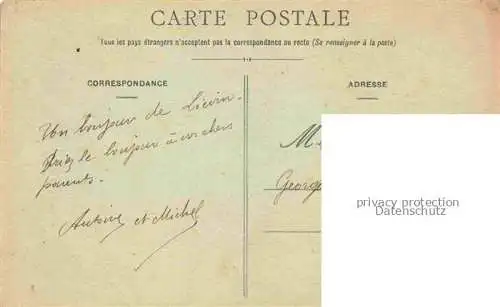 CARTE POSTALE
Tous les pays étrangers n'acceptent pas la correspondance au recto (Se renseigner à la poste)
CORRESPONDANCE
ADRESSE
Un bonjour de Liévin.
le bonjour à vos chers
parents.
Antoine et Michel
M
Georg
privacy protection
Datenschutz